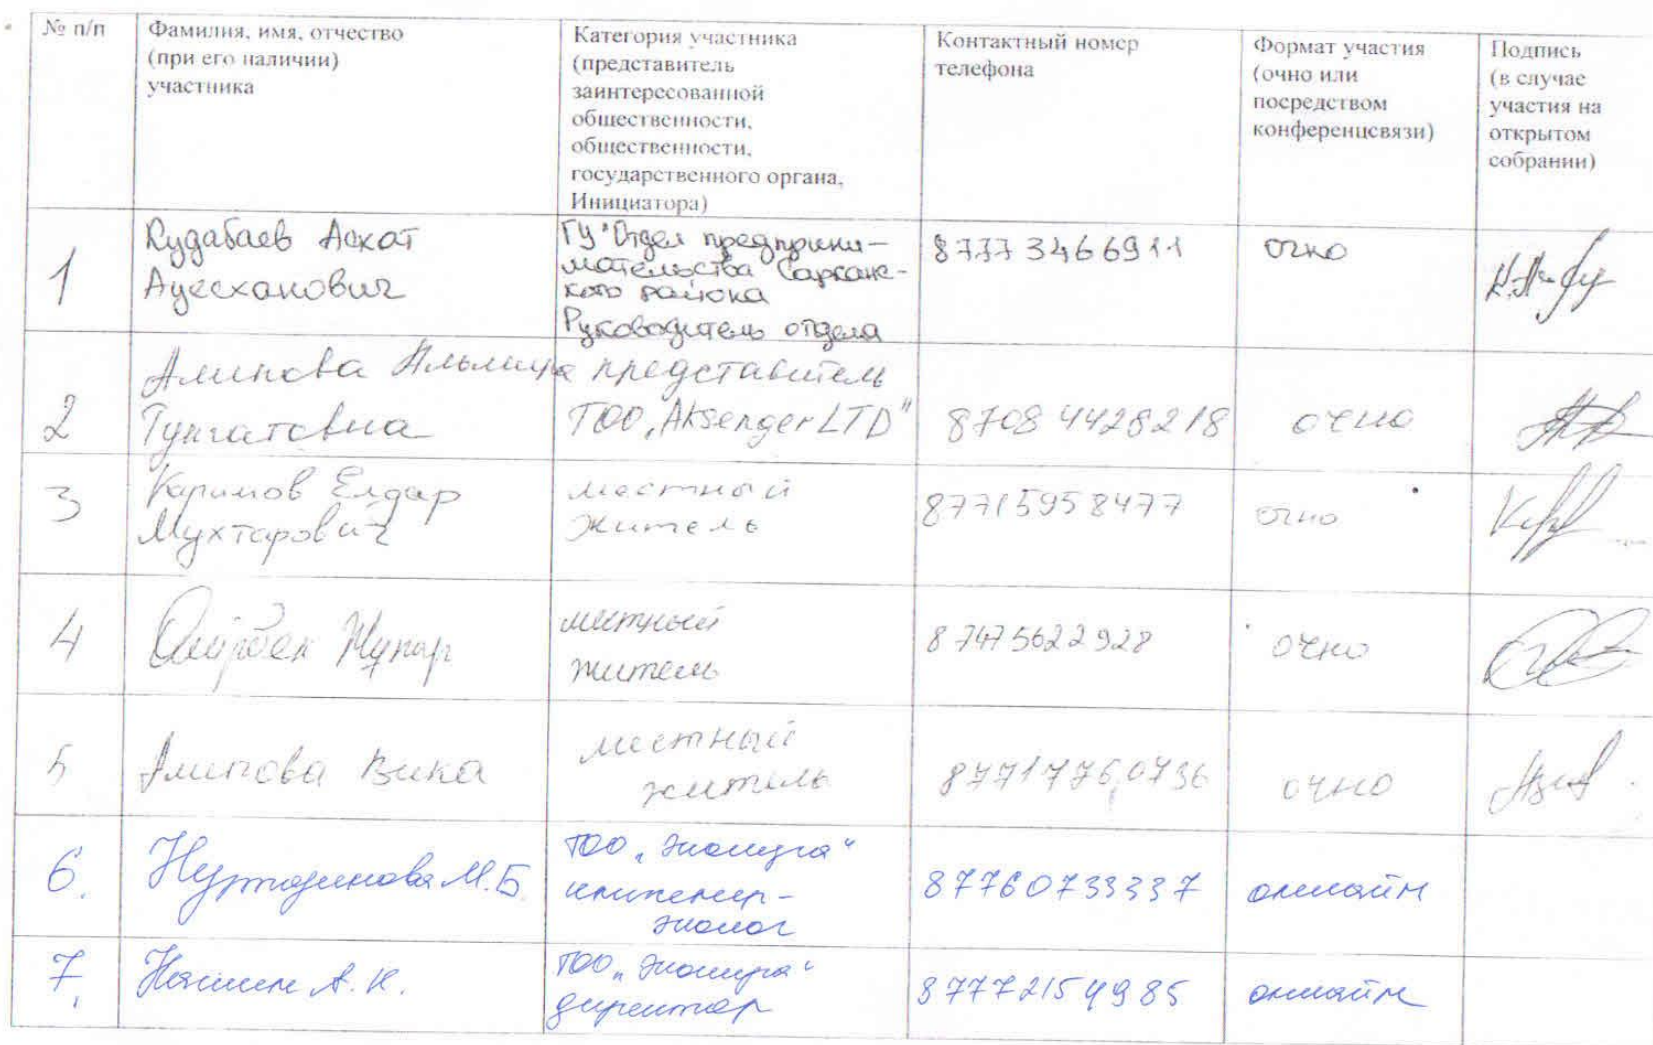 № п/п
Фамилия, имя, отчество
(при его наличии)
участника
Категория участника
(представитель
заинтересованной
общественности,
общественности,
государственного органа,
Инициатора)
Контактный номер
телефона
Формат участия
(очно или
посредством
конференцсвязи)
Подпись
(в случае
участия на
открытом
собрании)
1
Кудабаев Асхат
Ауесханович
ГУ "Отдел предприни-
мательства Саркан-
ского района
Руководитель отдела
8777 3466911
очно
2
Алипова Альмира
Тунгатовна
представитель
ТОО „Aksenger LTD"
8708 4428218
очно
3
Каримов Елдар
Мухтарович
местный
житель
87715958477
очно
4
Жупар
местный
житель
8 747 5622928
очно
5
Алипова Вика
местный
житель
87717760736
очно
6.
М.Б.
ТОО „Эколира"
инженер-
эколог
87760733337
онлайн
7.
А. К.
ТОО „Эколира"
директор
87772154985
онлайн